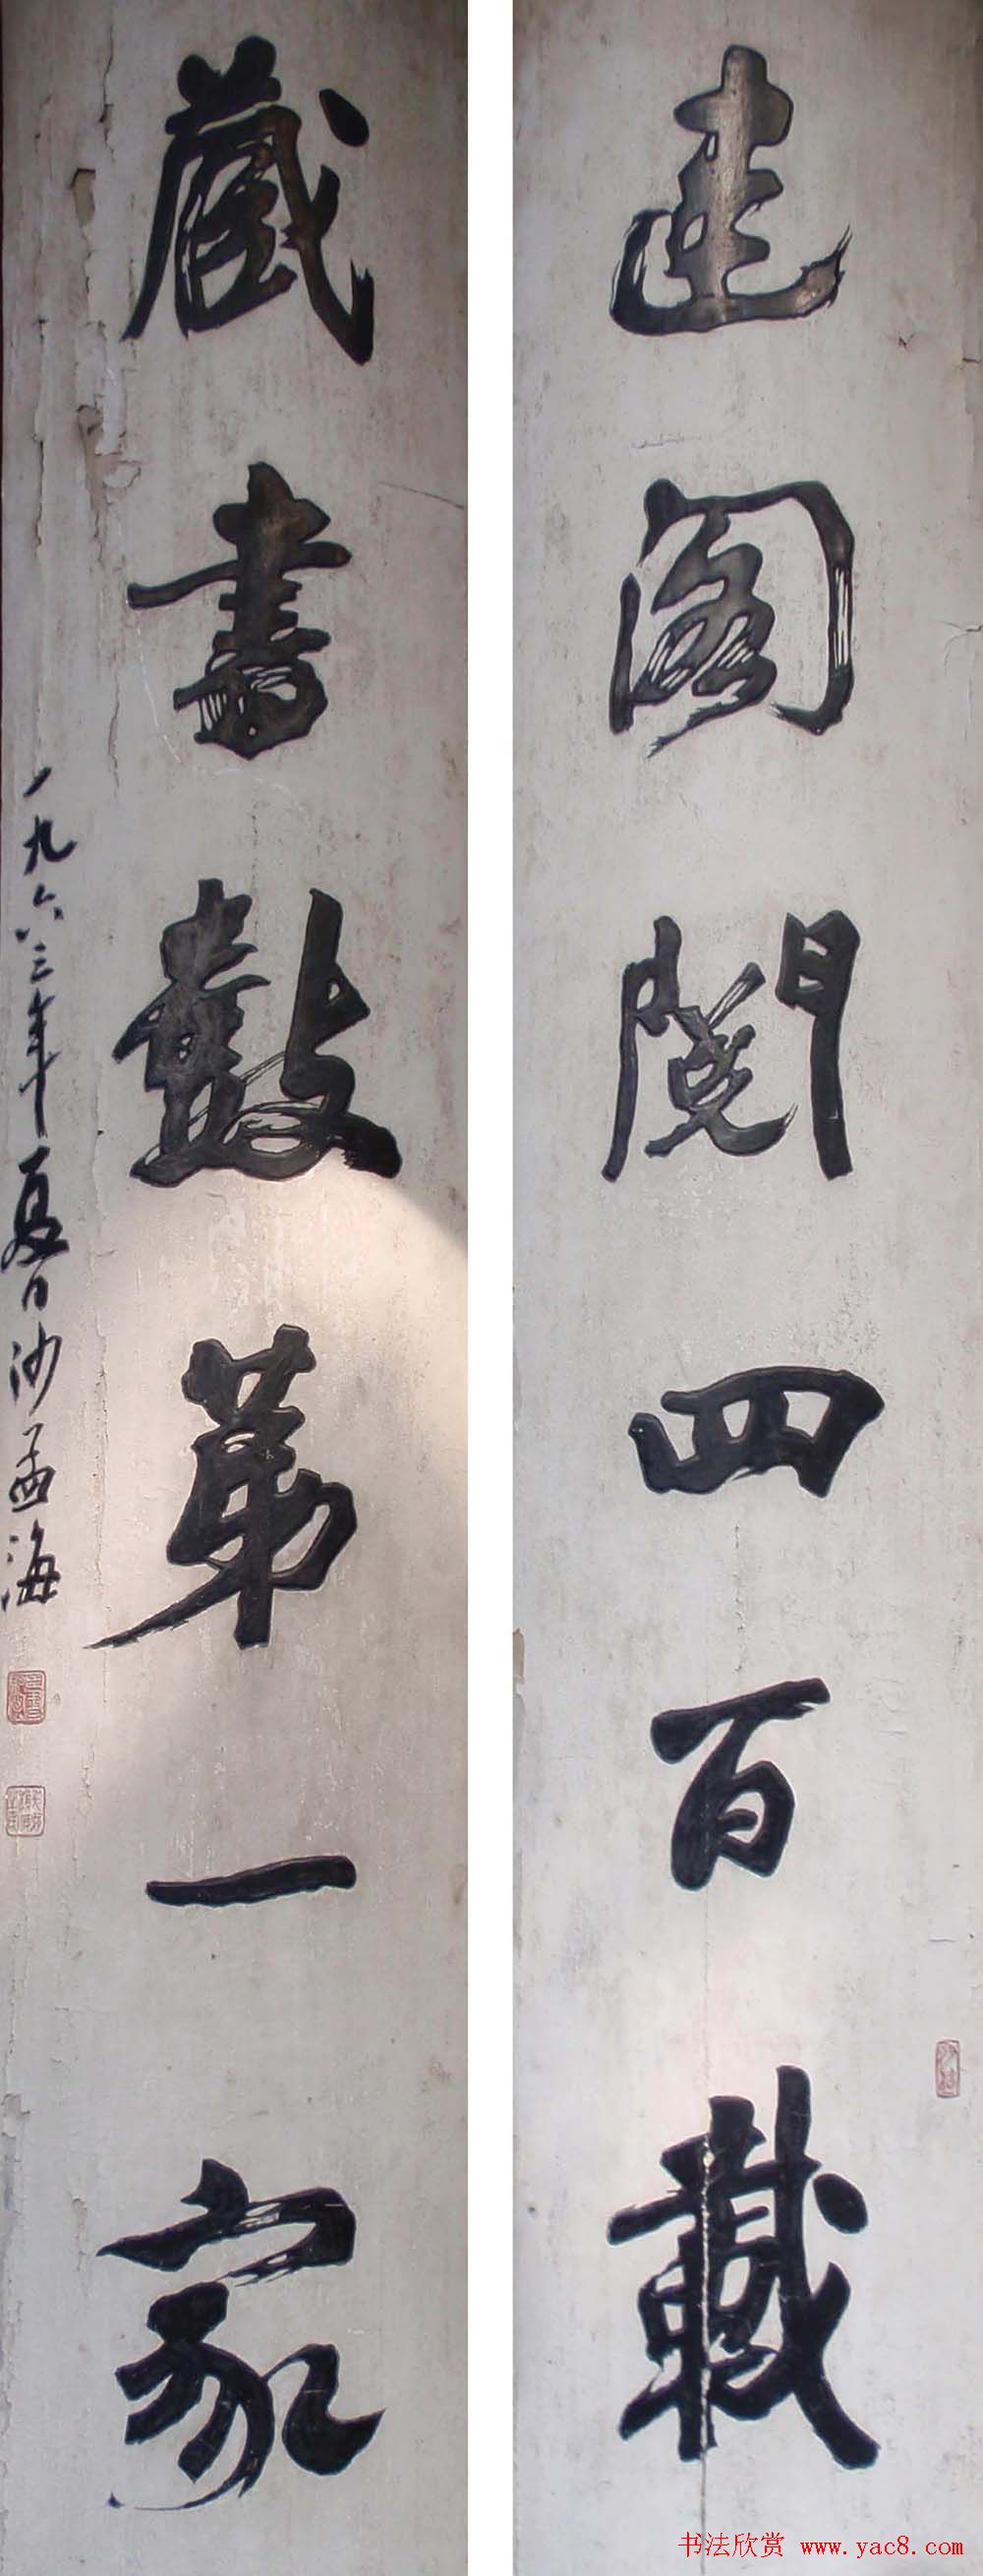 建阁阅四百載
藏書數第一家
一九六三年夏日沙孟海
书法欣赏 www.yac8.com